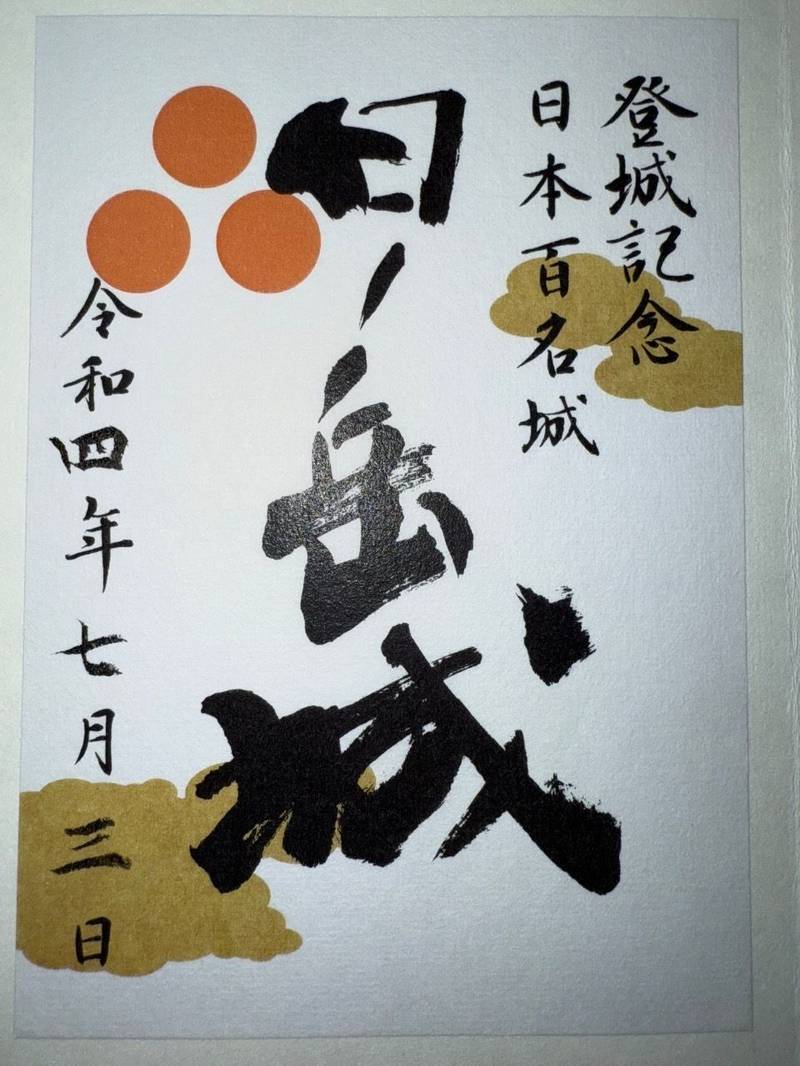 登城記念
日本百名城
日ノ岳城
令和四年七月三日